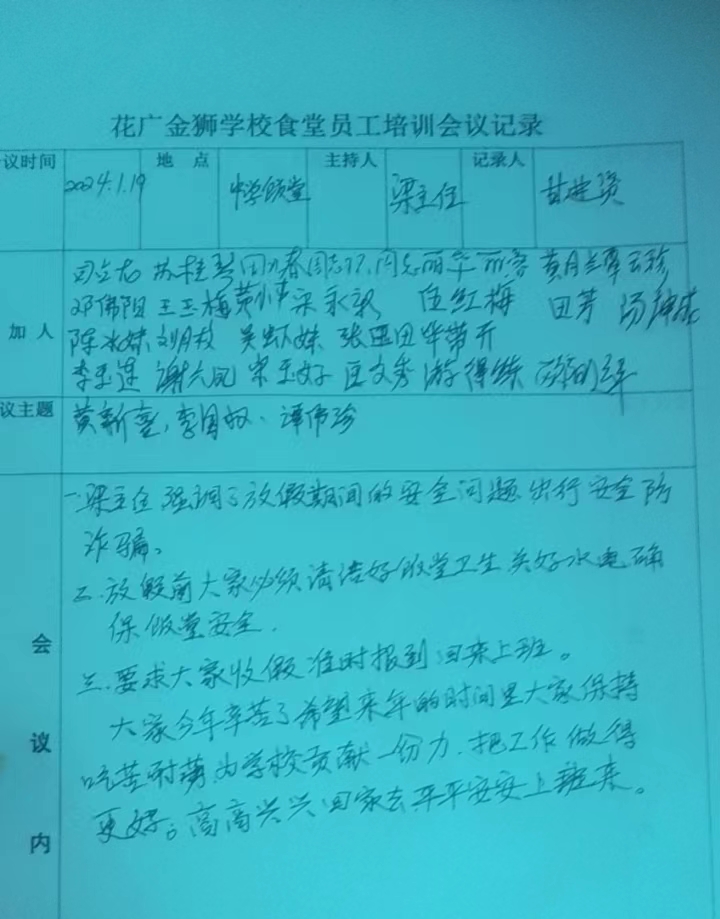 花广金狮学校食堂员工培训会议记录
议时间 2024.1.19 地 点 中学饭堂 主持人 梁主任 记录人
加人 苏桂
邓佛阳 王玉梅 伍红梅 田芳
陈水妹 刘月枝 吴虾妹
李玉莲 谢六凤 宋玉好 匡文秀 游得
议主题 黄新 谭伟珍
一.梁主任强调了放假期间的安全问题出行安全防
诈骗。
二.放假前大家必须清洁好饭堂卫生关好水电确
会 保饭堂安全.
三.要求大家收假准时报到回来上班。
议 大家今年辛苦了希望来年的时间里大家保持
吃苦耐劳为学校贡献一份力.把工作做得
内 更好。高高兴兴回家去平平安安上班来。